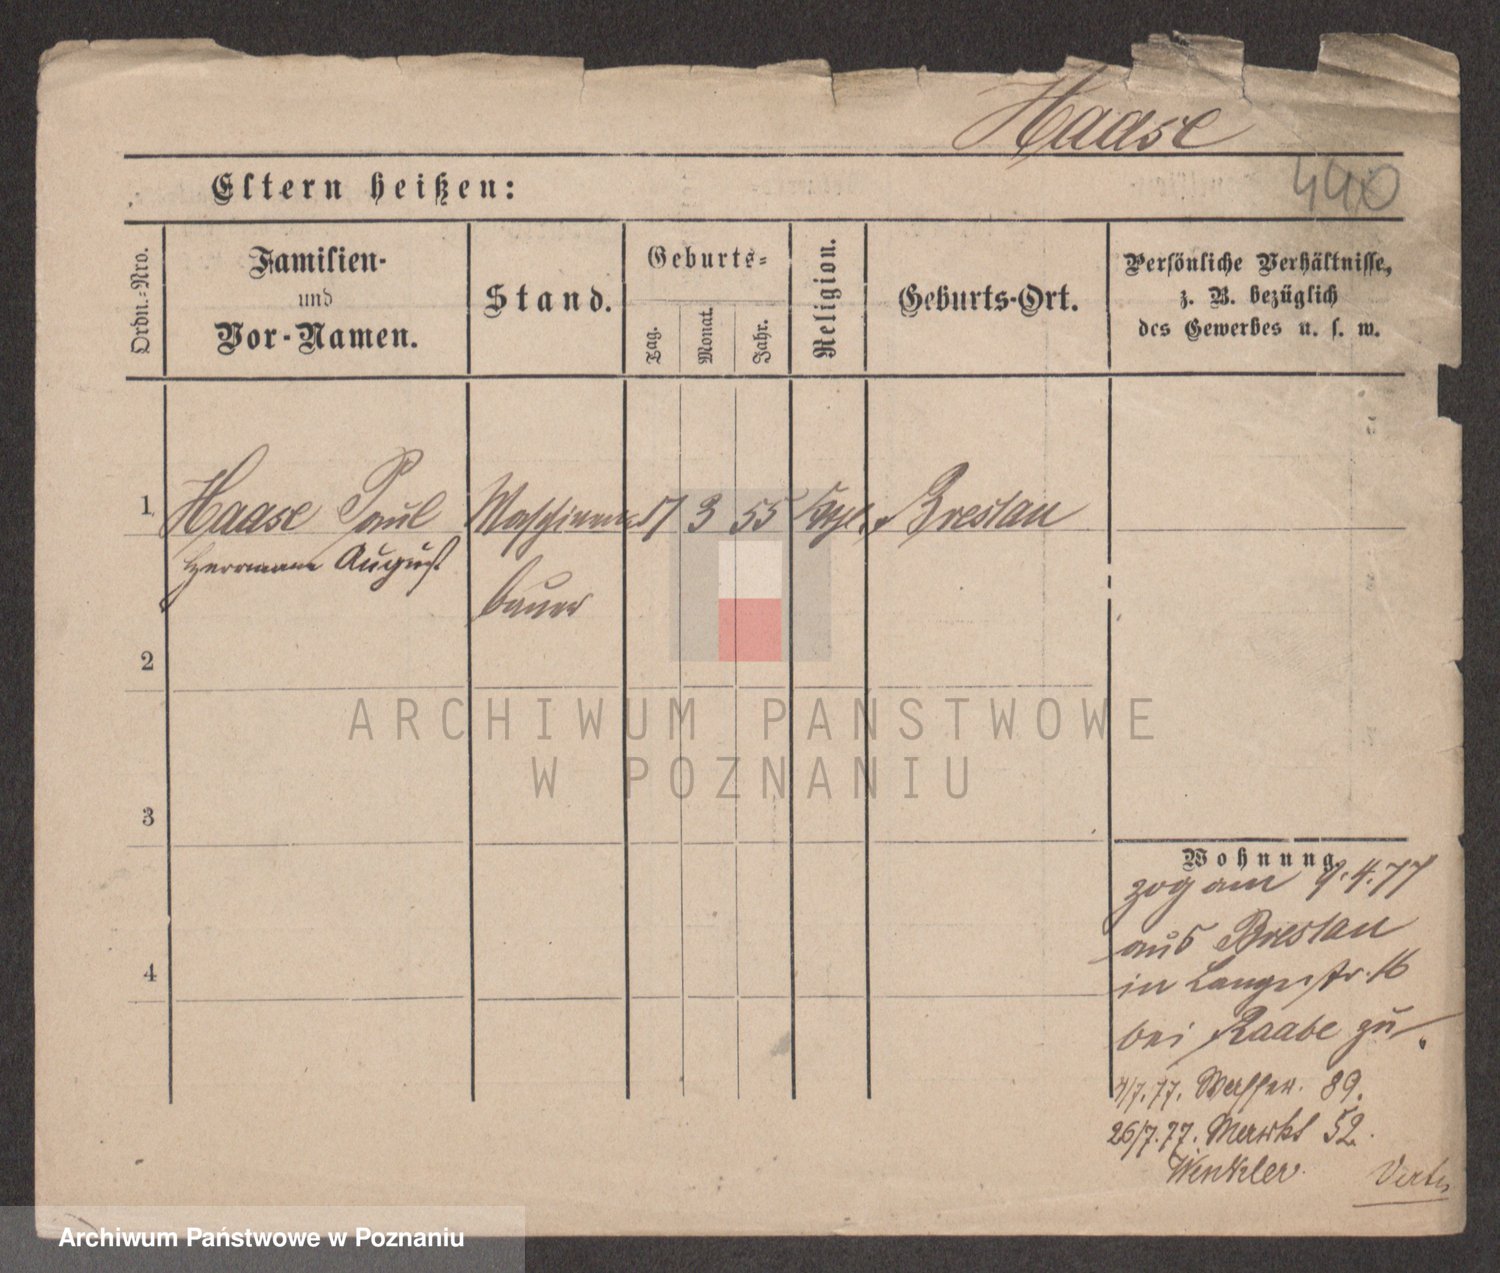 Haase
440
Eltern heißen:
Ordn.-Nro.
Familien-
und
Vor-Namen.
Stand.
Geburts-
Tag.
Monat.
Jahr.
Religion.
Geburts-Ort.
Persönliche Verhältnisse,
z. B. bezüglich
des Gewerbes u. s. w.
1 Haase Paul Maschinen 17 3 55 Breslau
Herrmann August
bauer
2
3
4
Wohnung
zog am 9.4.77
aus Breslau
in Langestr. 16
bei Raabe zu
4/7.77. Wasser. 89.
26/7.77. Markt 52.
Winkler
ARCHIWUM PAŃSTWOWE
W POZNANIU
Archiwum Państwowe w Poznaniu